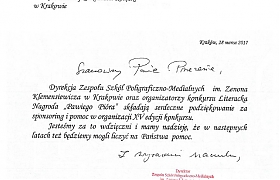 w Krakowie
Kraków, 18 marca 2017
Szanowny Panie Prezesie,
Dyrekcja Zespołu Szkół Poligraficzno-Medialnych im. Zenona
Klemensiewicza w Krakowie oraz organizatorzy konkursu Literacka
Nagroda „Pawiego Pióra" składają serdeczne podziękowanie za
sponsoring i pomoc w organizacji XV edycji konkursu.
Jesteśmy za to wdzięczni i mamy nadzieję, że w następnych
latach też będziemy mogli liczyć na Państwa pomoc.
Z wyrazami szacunku,
DYREKTOR
Zespołu Szkół Poligraficzno-Medialnych